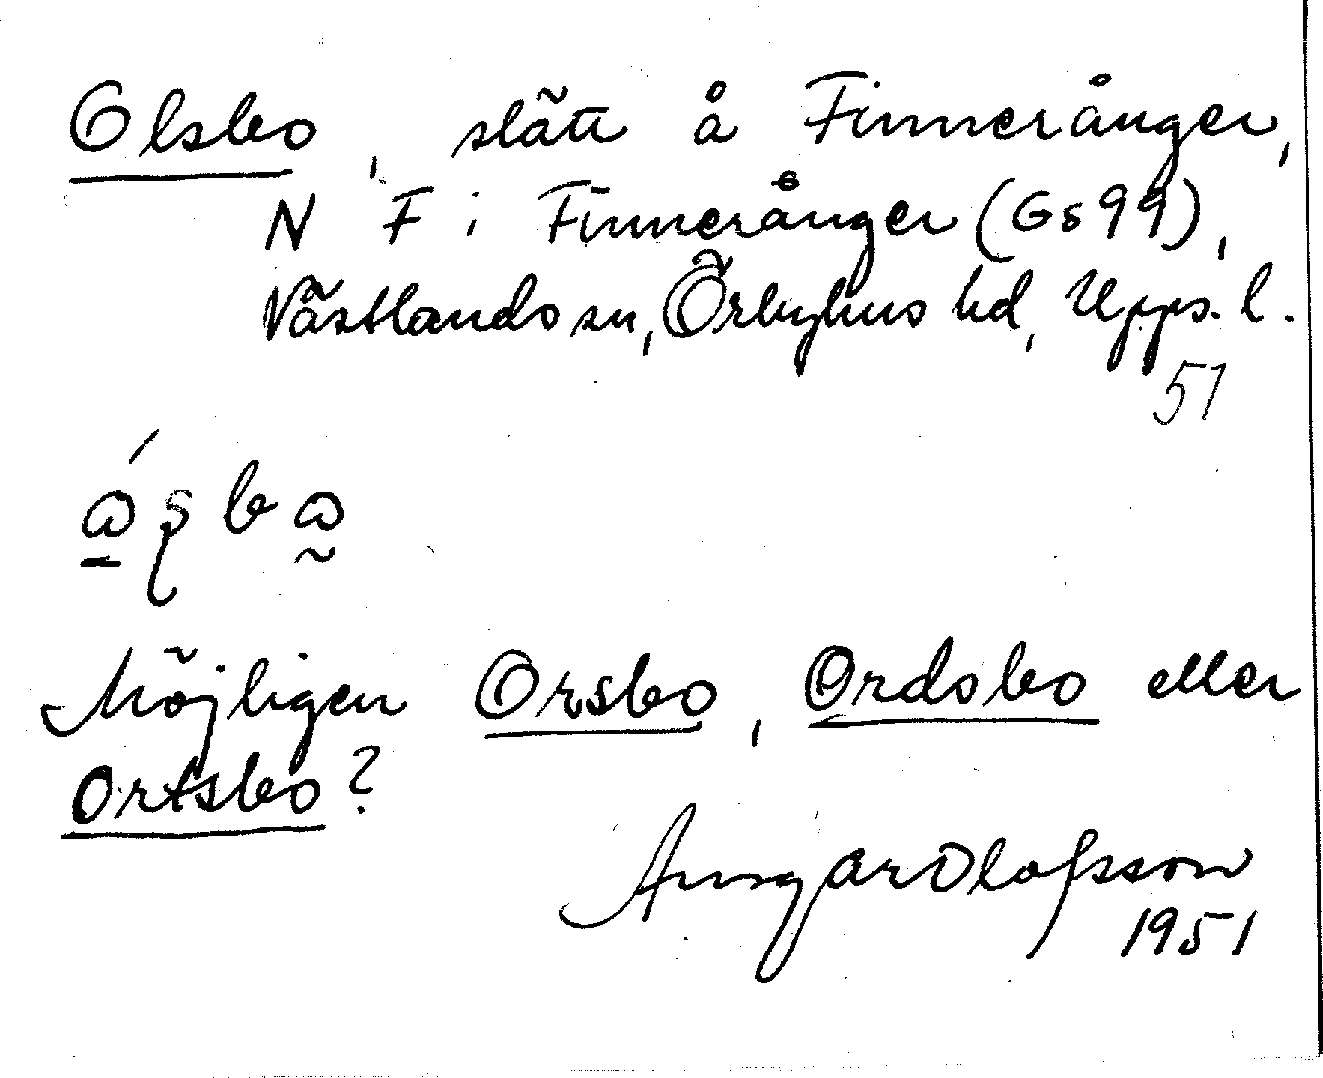 Olsbo, slätt å Finneränger,
N F i Finnerånger (Gs 99),
Västlands sn, Örbyhus hd, Upps. l.
51
Möjligen Orsbo, Ordsbo eller
Ortsbo?
Ansgar Olofsson
1951